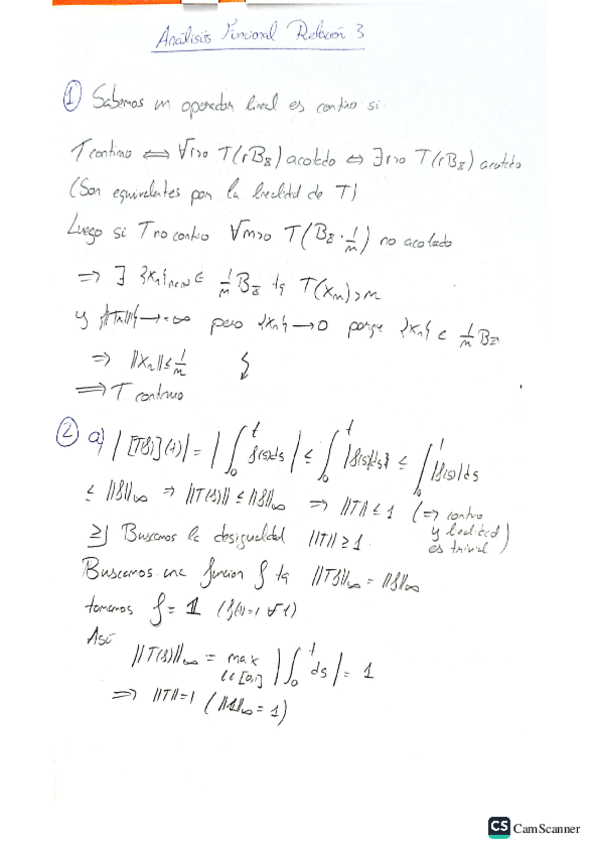 Análisis Funcional Relación 3
① Sabemos un operador lineal es continuo si
T continuo ⟺ ∀r>0 T(rB_E) acotado ⟺ ∃r>0 T(rB_E) acotado
(Son equivalentes por la linealidad de T)
Luego si T no continuo ∀m>0 T(B_E · 1/m) no acotado
⟹ ∃ {x_n}_{n∈N} ∈ 1/m B_E tq T(x_m)>m
y →∞ pero {x_n} → 0 porque {x_n} ∈ 1/m B_E
⟹ ||x_n|| ≤ 1/m
⟹ T continuo
② a) |[T(f)](t)| = |∫_0^t f(s)ds| ≤ ∫_0^t |f(s)|ds ≤ ∫_0^1 |f(s)|ds
≤ ||f||_∞ ⟹ ||T(f)|| ≤ ||f||_∞ ⟹ ||T|| ≤ 1 (⟹ continuo
y linealidad
es trivial)
≥] Buscamos la desigualdad ||T|| ≥ 1
Buscamos una funcion f tq ||Tf||_∞ = ||f||_∞
tomamos f = 1 (f(t)=1 ∀t)
Así
||T(f)||_∞ = max t∈[0,1] |∫_0^t ds| = 1
⟹ ||T|| = 1 (||1||_∞ = 1)
CS CamScanner